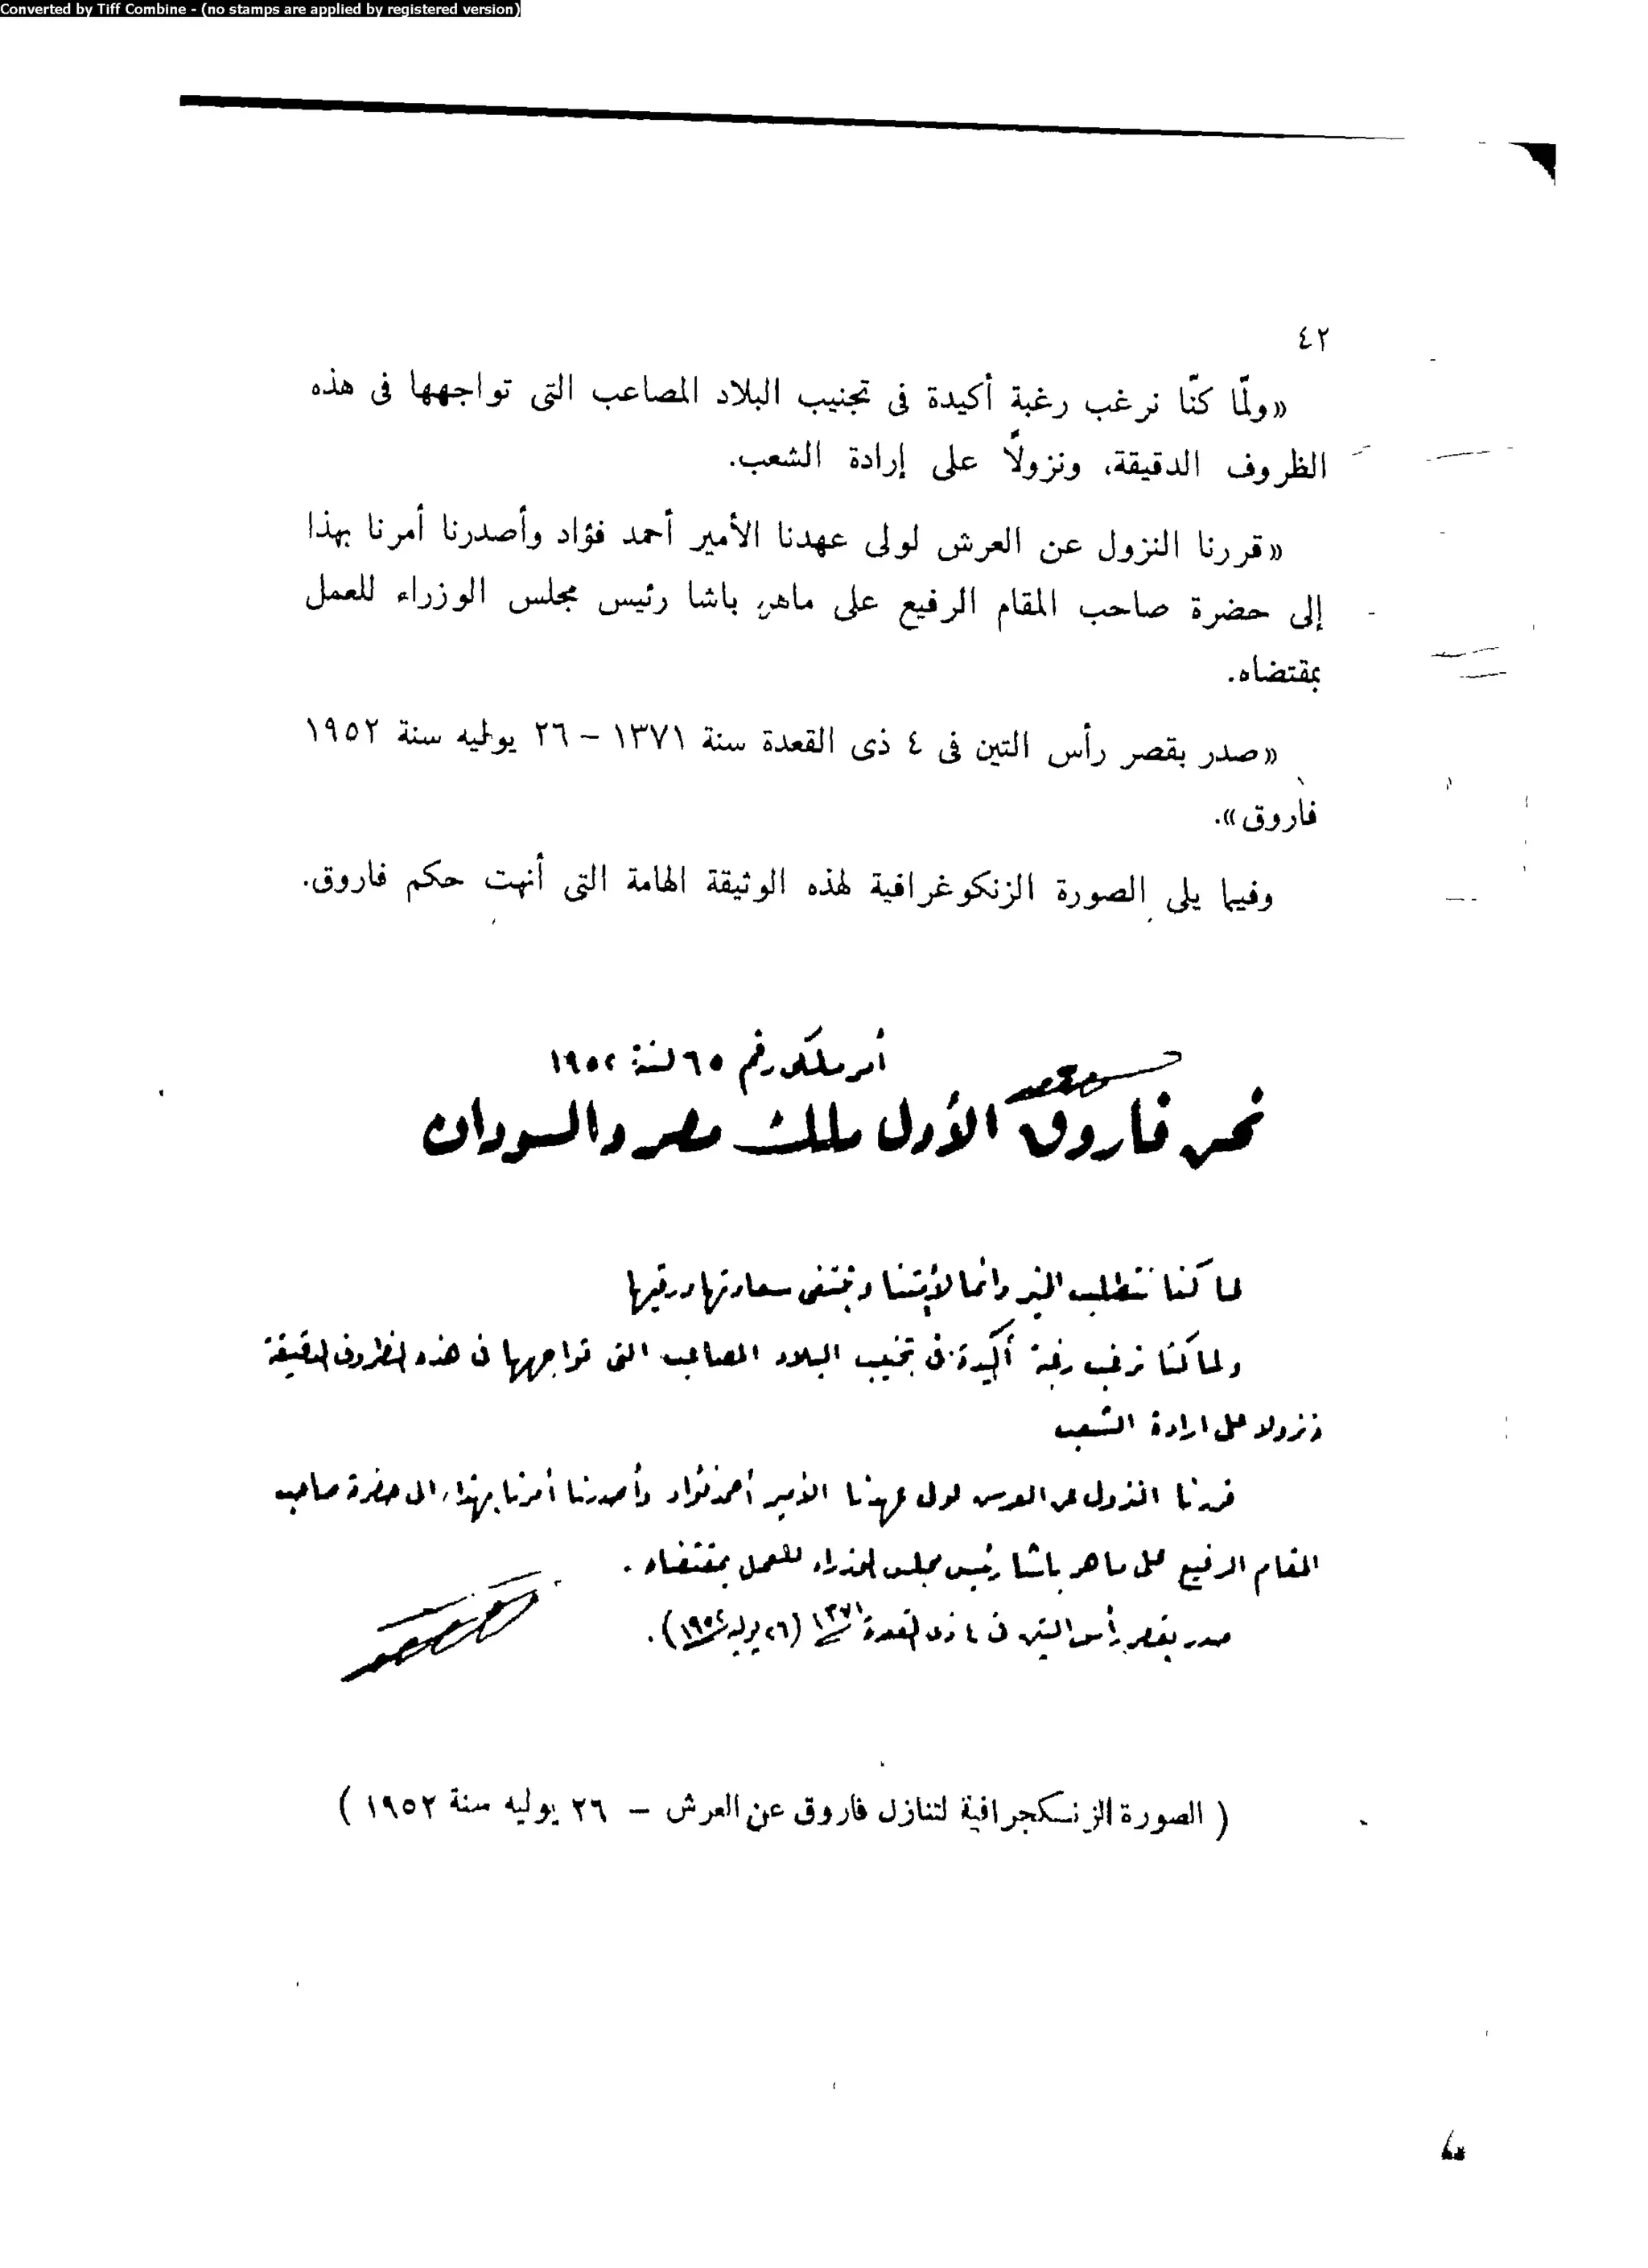 Converted by Tiff Combine - (no stamps are applied by registered version)
٤٢
«ولمّا كنّا نرغب رغبة أكيدة فى تجنيب البلاد المصاعب التى تواجهها فى هذه
الظروف الدقيقة، ونزولاً على إرادة الشعب.
«قررنا النزول عن العرش لولى عهدنا الأمير أحمد فؤاد وأصدرنا أمرنا بهذا
إلى حضرة صاحب المقام الرفيع على ماهر باشا رئيس مجلس الوزراء للعمل
بمقتضاه.
«صدر بقصر رأس التين فى ٤ ذى القعدة سنة ١٣٧١ – ٢٦ يوليه سنة ١٩٥٢
فاروق».
وفيما يلى الصورة الزنكوغرافية لهذه الوثيقة الهامة التى أنهت حكم فاروق.
أمر ملكى رقم ٦٥ لسنة ١٩٥٢
نحن فاروق الأول ملك مصر والسودان
لما كنا نتطلب الخير دائما لأمتنا ونبتغى سعادتها ورقيها
ولما كنا نرغب رغبة أكيدة فى تجنيب البلاد المصاعب التى تواجهها فى هذه الظروف الدقيقة
ونزولا على ارادة الشعب
قررنا النزول عن العرش لولى عهدنا الأمير أحمد فؤاد وأصدرنا أمرنا بهذا الى حضرة صاحب
المقام الرفيع على ماهر باشا رئيس مجلس الوزراء للعمل بمقتضاه .
صدر بقصر رأس التين فى ٤ ذى القعدة ١٣٧١ (٢٦ يوليه ١٩٥٢) .
( الصورة الزنكجرافية لتنازل فاروق عن العرش – ٢٦ يوليه سنة ١٩٥٢ )